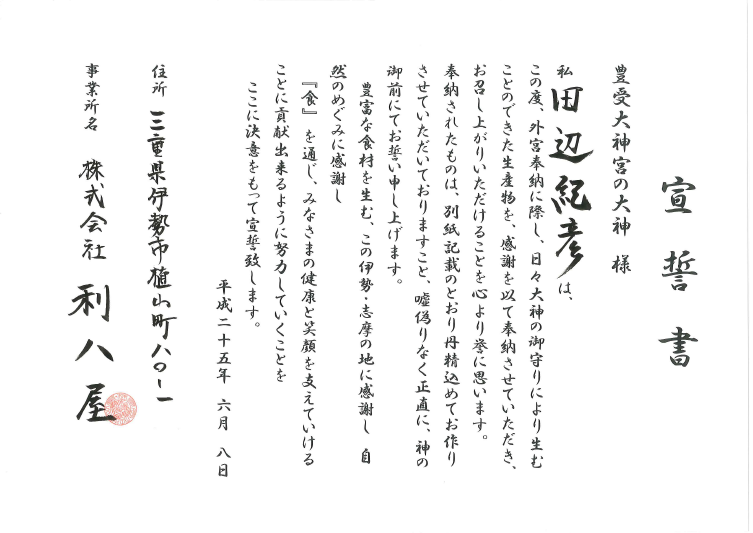 宣誓書
豊受大神宮の大神 様
私 田辺紀彦は、
この度、外宮奉納に際し、日々大神の御守りにより生む
ことのできた生産物を、感謝を以て奉納させていただき、
お召し上がりいただけることを心より誉に思います。
奉納されたものは、別紙記載のとおり丹精込めてお作り
させていただいておりますこと、嘘偽りなく正直に、神の
御前にてお誓い申し上げます。
豊富な食材を生む、この伊勢・志摩の地に感謝し 自
然のめぐみに感謝し
『食』 を通じ、みなさまの健康と笑顔を支えていける
ことに貢献出来るように努力していくことを
ここに決意をもって宣誓致します。
平成二十五年 六月 八日
住所 三重県伊勢市植山町八〇ー一
事業所名 株式会社 利八屋